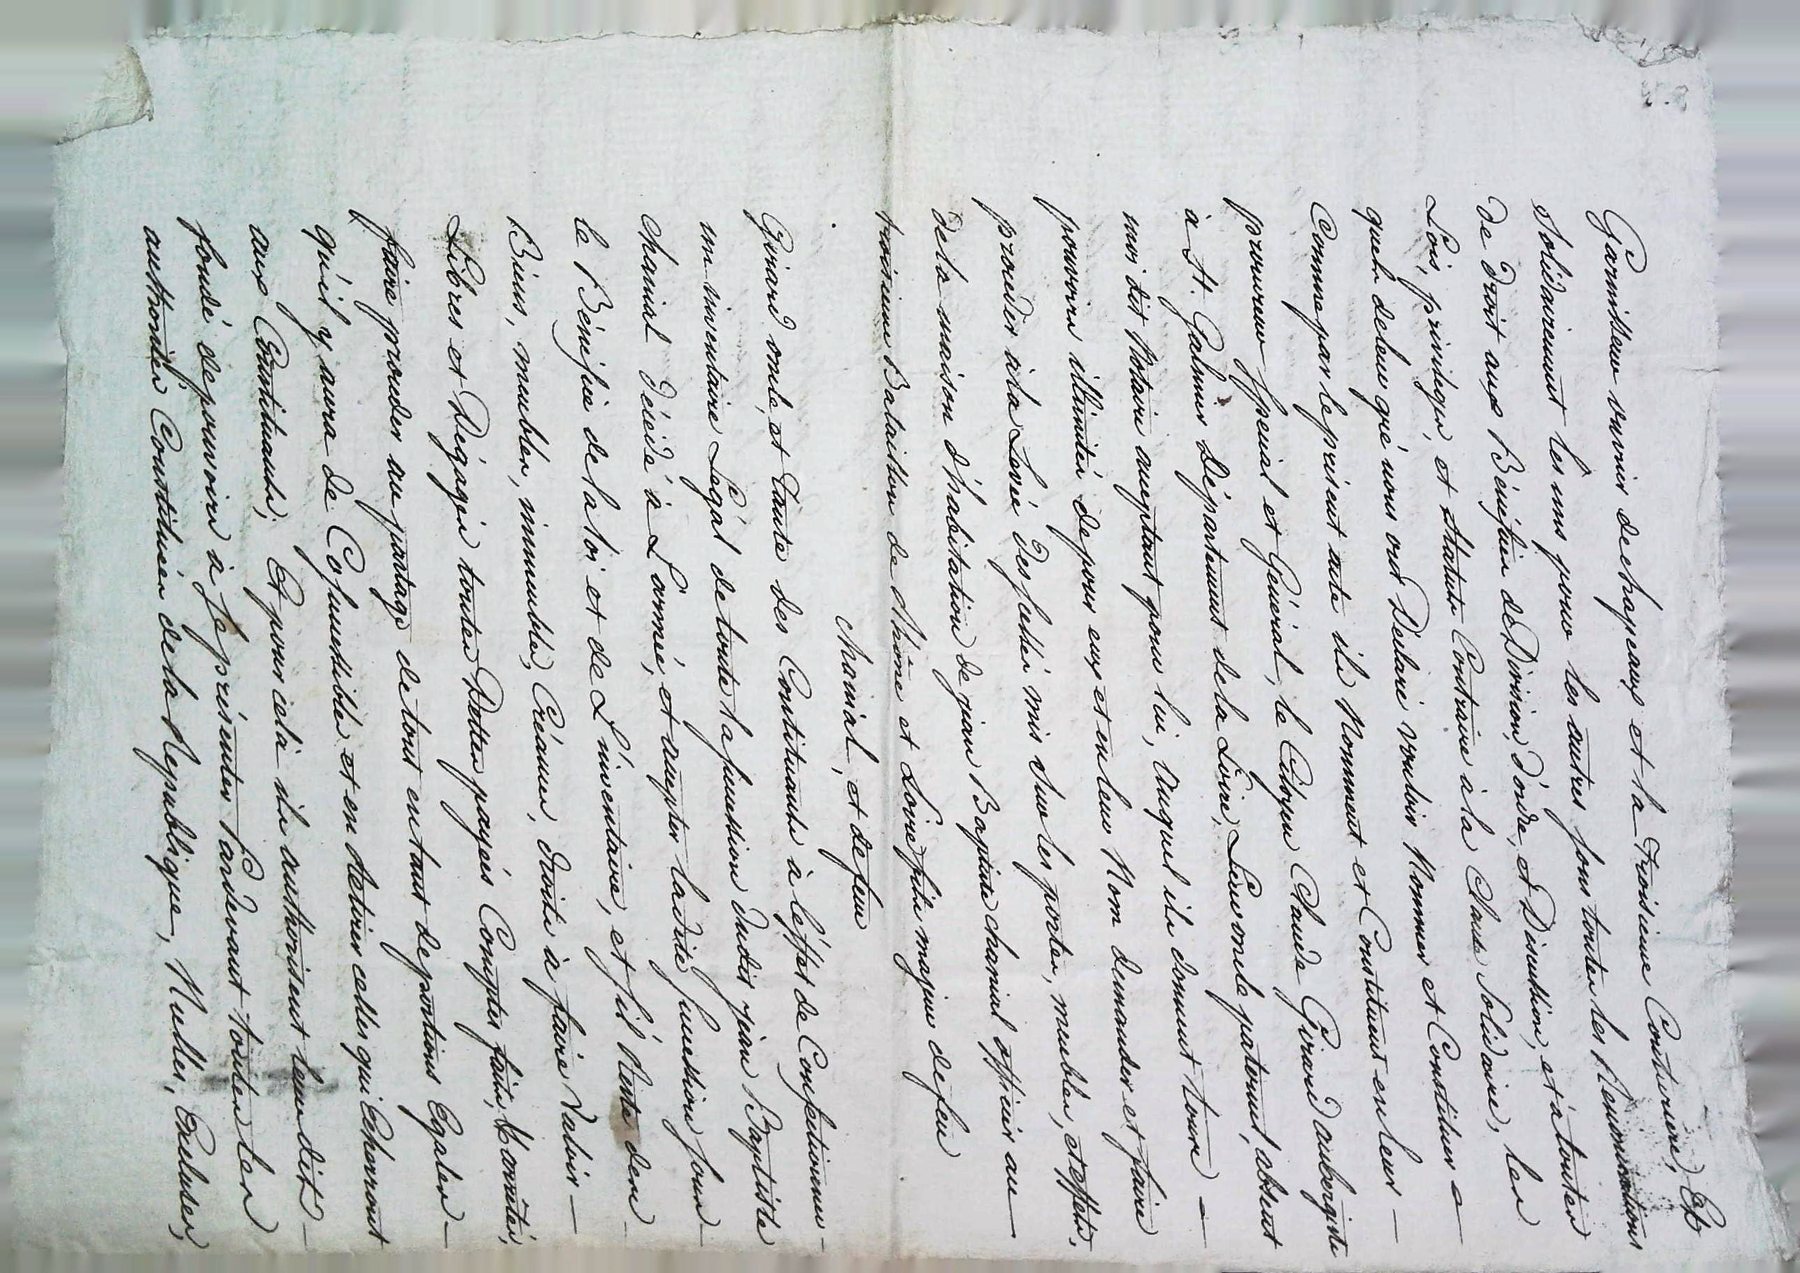 Garnisseur ouvrier de chapeaux et la Troisieme Couturiere, Et
Solidairement les uns pour les autres sous toutes les Renonciations
De droit aux Bénéfices de Division, d'ordre, et Discution, et à toutes
Lois, privileges, et Statuts Contraire à la Clause Solidaire, les
quels de leur gré nous ont Déclaré vouloir Nommer et Constituer
Comme par le présent acte ils Nomment et Constituent en leur —
procureur Special et Général, le Citoyen Claude Girard aubergiste
à St. Galmier Département de la Loire, Leur oncle paternel, absent
moi dit Notaire acceptant pour lui, auquel ils donnent tous —
pouvoirs illimités de pour eux et en leur Nom demander et faire
procéder à la Levée Des scellés mis sur les portes, meubles, et effets,
de la maison d'habitation de jean Baptiste chanial officier au
troisieme Bataillon de Rhône et Loire fils majeur de feu
chanial, et de feu
Girard oncle, et Tante des Constituants à l'effet de Confectionner —
un inventaire Légal de toute la succession dudit jean Baptiste
chanial Décédé à L'armée, et accepter ladite succession sous —
le Bénéfice de la loi et de L'inventaire, et s'il Reste des —
Biens, meubles, immeubles, Créances, droits à faire Valoir —
Libres et Dégagés toutes Dettes payés Comptes faits,
faire procéder au partage de tout en tant de portions Egales —
qu'il y aura de Cosuccessibles et en Retirer celles qui Echerront
aux Constituants; Et pour cela ils authorisent leur dit —
fondé de pouvoirs à Se présenter Pardevant toutes les
authorités Constituées de la Republique, Nulles, Excluses,